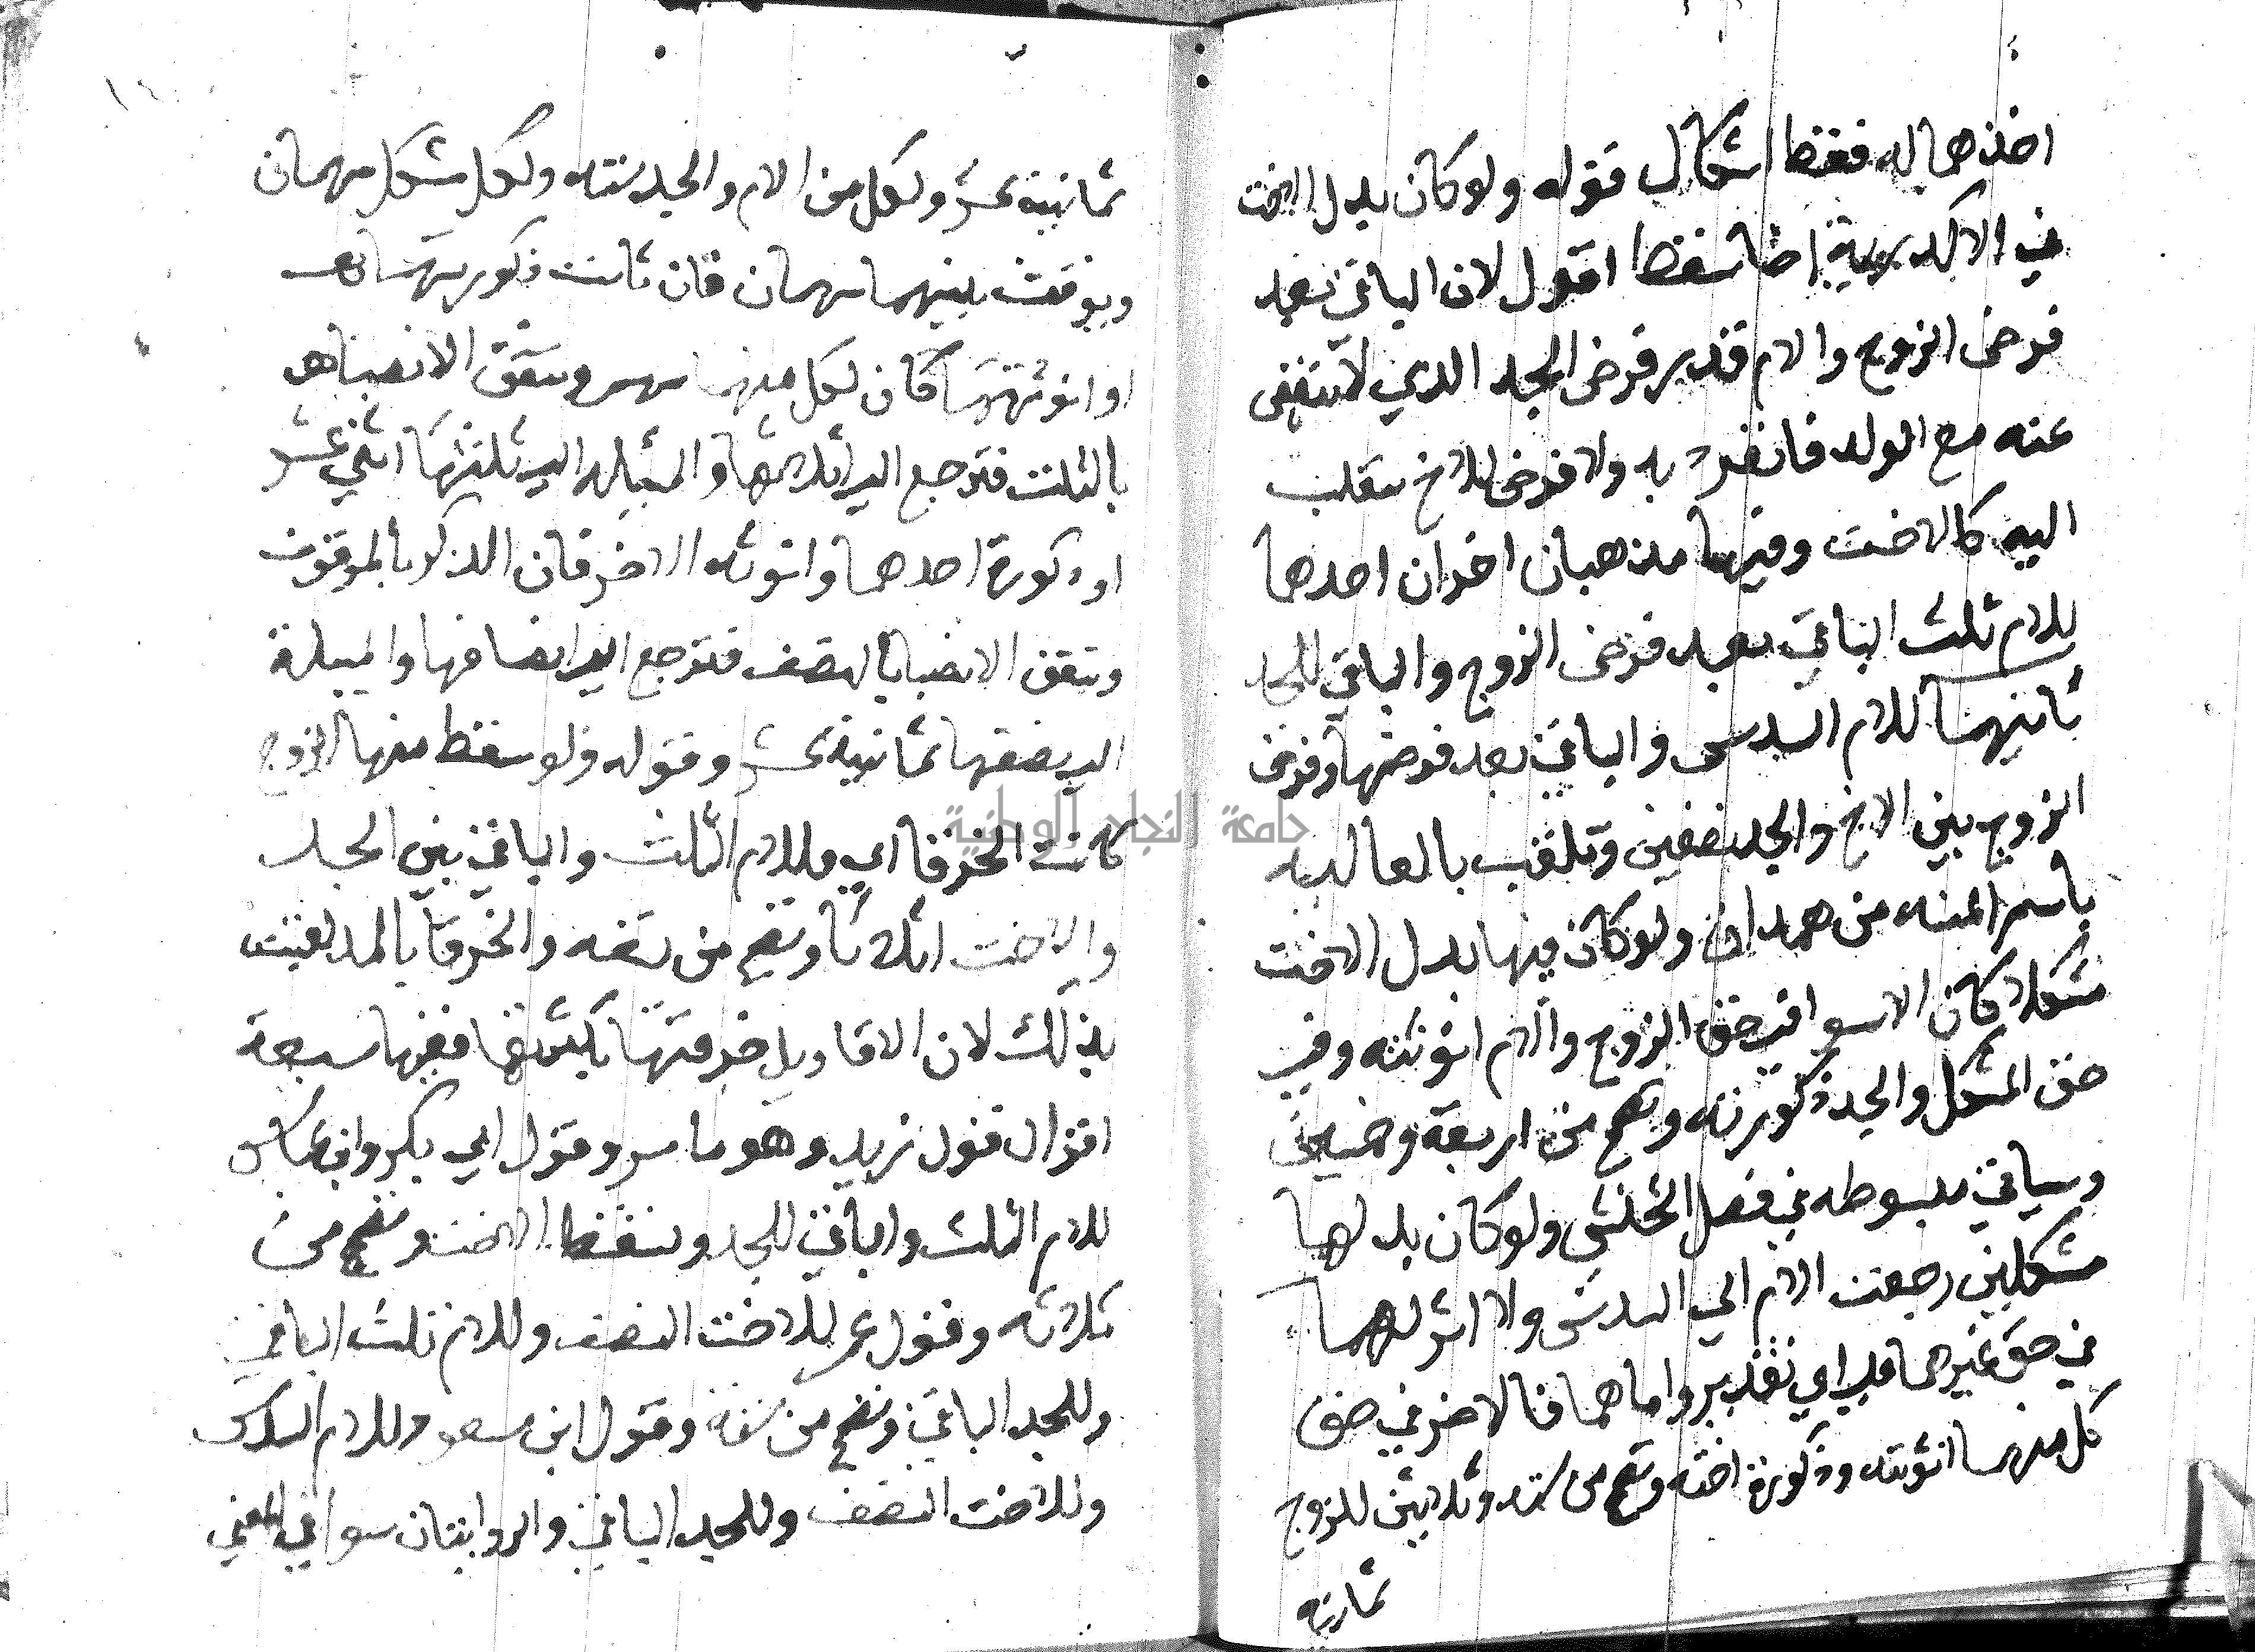 اخذهما له فقط اشكال قوله ولو كان بدل الاخت
في الاكدرية اخا سقط اقول لان الباقي بعد
فرض الزوج والام قدر فرض الجد الذي لا ينقص
عنه مع الولد فانفرد به ولا فرض للاخ ينقلب
اليه كالاخت وفيها مذهبان اخران احدهما
للام ثلث الباقي بعد فرض الزوج والباقي للجد
ثانيهما للام السدس والباقي بعد فرضها وفرض
الزوج بين الاخ والجد نصفين وتلقب بالعالية
باسم الميته من همدان ولو كان فيها بدل الاخت
مشكلا كان الاسوا في حق الزوج والام انوثته وفي
حق المشكل والجد ذكورته وتصح من اربعة وخمسين
وسياتي مبسوطه في فصل الخنثى ولو كان بدلها
مشكلين رجعت الام الي السدس ولا اثر لهما
في حق غيرهما علي اي تقدير واما هما فالاضر في حق
كل منهما انوثته وذكورة اخته وتصح من سته وثلاثين للزوج
ثمانية
ثمانية عشر ولكل من الام والجد سته ولكل مشكل سهمان
ويوقف بينهما سهمان فان بانت ذكورتهما
او انوثتهما كان لكل منهما سهم وتتفق الانصباء
بالثلث فترجع الي اثلاثها والمسئلة الي ثلثها اثني عشر
او ذكورة احدهما وانوثة الاخر فاز الذكر بالموقوف
وتتفق الانصبا بالنصف فترجع الي انصافها والمسئلة
الي نصفها ثمانية عشر وقوله ولو سقط منها الزوج
كانت الخرقا اي وللام الثلث والباقي بين الجد
والاخت اثلاثا وتصح من تسعه والخرقا بالمد لقبت
بذلك لان الاقاويل خرقتها بكثرتها ففيها سبعة
اقوال قول زيد وهو ما مر وقول ابي بكر وابن عباس
للام الثلث والباقي للجد وتسقط الاخت وتصح من
ثلاثه وقول عمر للاخت النصف وللام ثلث الباقي
وللجد الباقي وتصح من سته وقول ابن مسعود للام السدس
وللاخت النصف وللجد الباقي والروايتان سوا في المعني
جامعة النجاح الوطنية